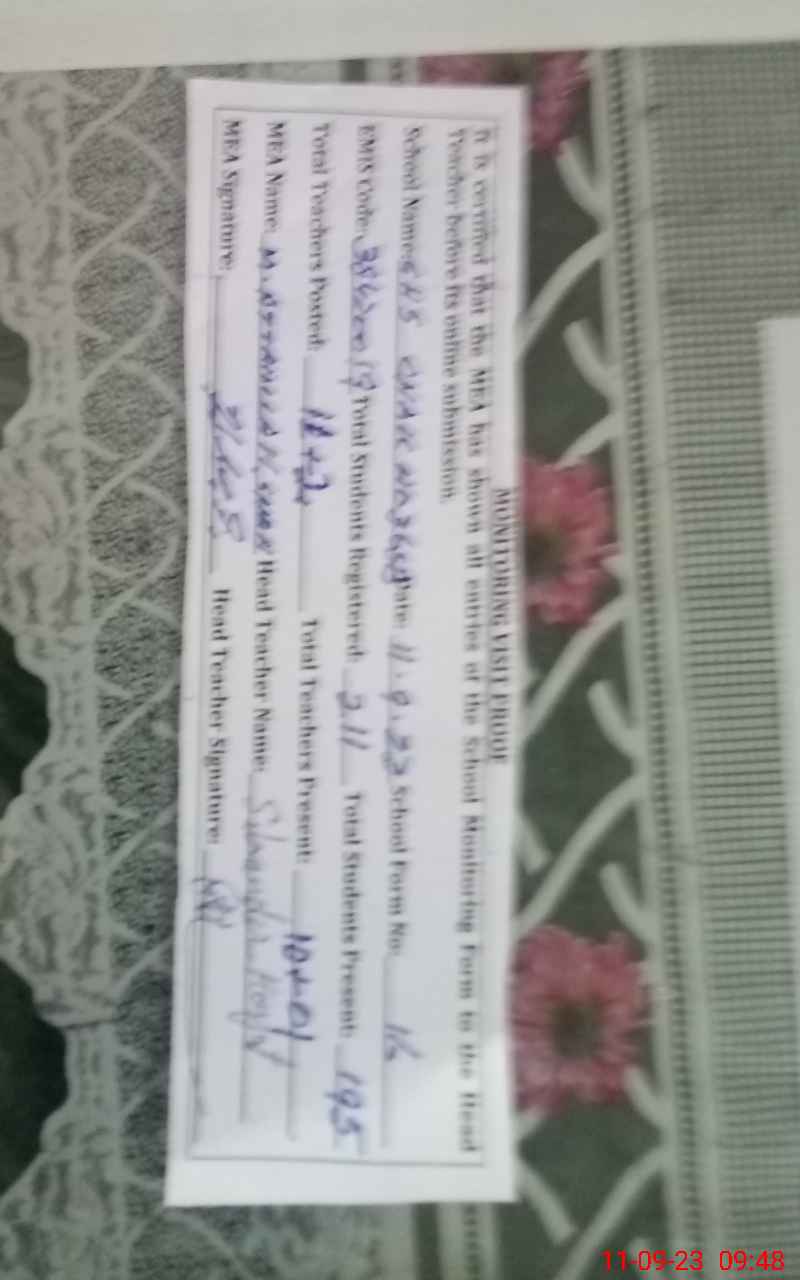 MONITORING VISIT PROOF
It is certified that the MEA has shown all entries of the School Monitoring Form to the Head
Teacher before its online submission.
School Name: GHS CHAK NO. Date: 11.9.23 School Form No: 16
EMIS Code: Total Students Registered: 211 Total Students Present: 195
Total Teachers Posted: 11+2 Total Teachers Present: 10+01
MEA Name: M. Head Teacher Name:
MEA Signature: Head Teacher Signature:
11-09-23 09:48